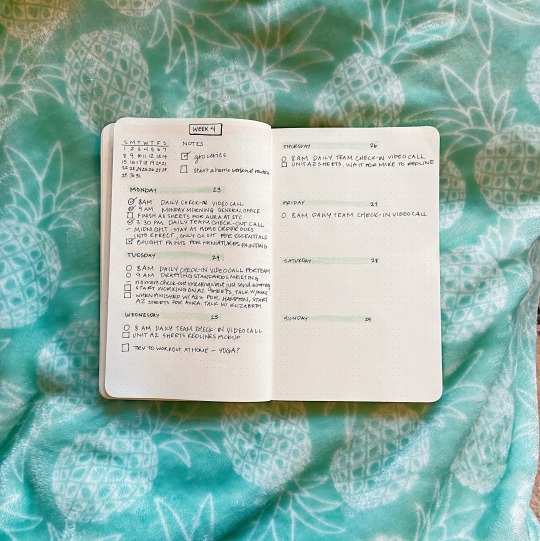 WEEK 4
S M T W T F S
1 2 3 4 5 6 7
8 9 10 11 12 13 14
15 16 17 18 19 20 21
22 23 24 25 26 27 28
29 30 31
NOTES
groceries
start a home workout routine
MONDAY 23
8AM DAILY CHECK-IN VIDEO CALL
9AM MONDAY MORNING GENERAL OFFICE
FINISH A2 SHEETS FOR AURA AT STC
3:30 PM DAILY TEAM CHECK-OUT CALL
- MIDNIGHT - STAY AT HOME ORDER GOES
INTO EFFECT, ONLY GO OUT FOR ESSENTIALS
BOUGHT PAINTS FOR MINIATURES PAINTING
TUESDAY 24
8AM DAILY CHECK-IN VIDEO CALL FOR TEAM
9AM DRAFTING STANDARDS MEETING
no more check-out meetings but just send summary
START WORKING ON A2 SHEETS, TALK W/ MIKE
WHEN FINISHED W/ A2S FOR HAMPTON, START
A2 SHEETS FOR AURA. TALK W/ ELIZABETH
WEDNESDAY 25
8AM DAILY TEAM CHECK-IN VIDEO CALL
UNIT A2 SHEETS REDLINES PICKUP
TRY TO WORKOUT AT HOME - YOGA?
THURSDAY 26
8AM DAILY TEAM CHECK-IN VIDEO CALL
UNIT A2 SHEETS, WAIT FOR MIKE TO REDLINE
FRIDAY 27
8AM DAILY TEAM CHECK-IN VIDEO CALL
SATURDAY 28
SUNDAY 29